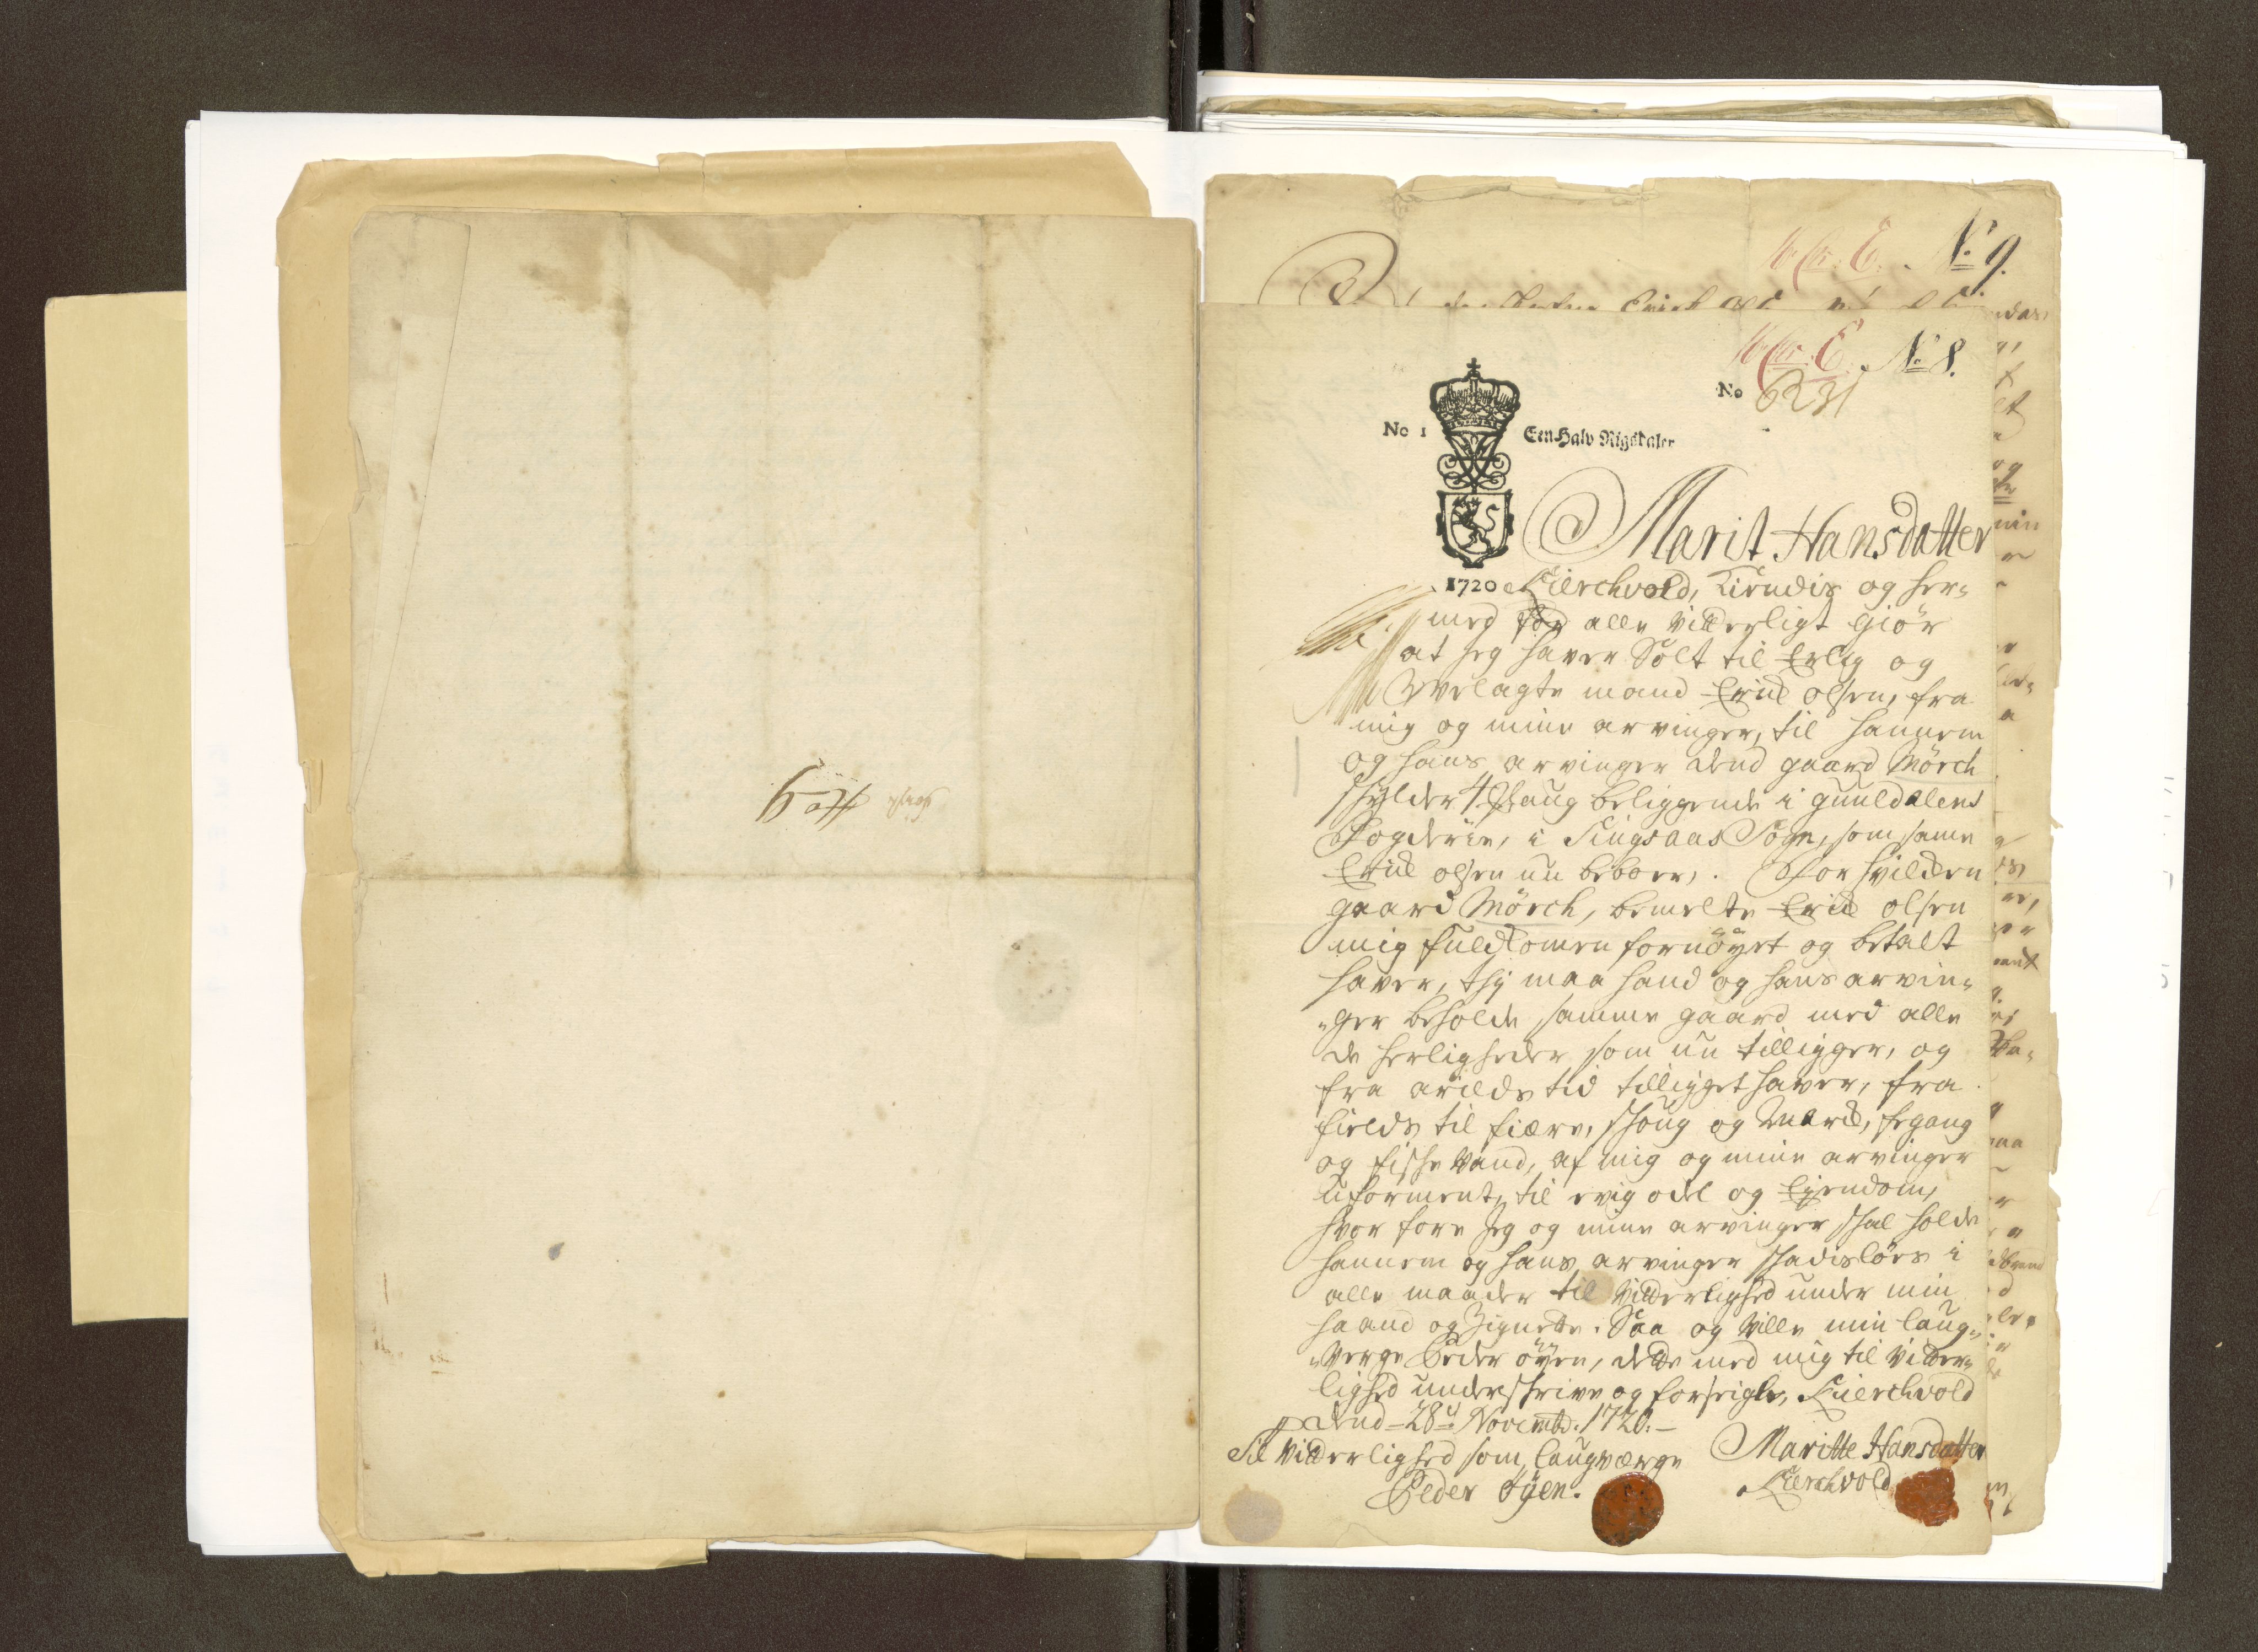 No 9
N.º 9.
N.º 8.
No 6231
No 1 Een Halv Rigsdaler
Marit Hansdatter
1720 Kierchvold, Kiendis og her=
med for alle Vitterligt Giör
at jeg haver Solt til Erlig og
Velagte mand Erich olsen, fra
mig og mine arvinger, til hannem
og hans arvinger dend gaard Mörch
schylder 4 Spand beliggende i Guuldalens
Fogderie, i Singsaas Sogn, som same
Erich olsen nu beboer. For hvilcken
gaard Mörch, bemelte Erich olsen
mig fuldkomen fornöyet og betalt
haver, thj maa hand og hans arvin=
=ger beholde samme gaard med alle
de herligheder som nu tilligger, og
fra arilds tid tilligget haver, fra
fields til fiære, schoug og March, fegang
og fische Vand, af mig og mine arvinger
uforment, til evig odel og Ejendom,
hvor fore jeg og mine arvinger schal holde
hannem og hans arvinger schadislöes i
alle maader til Vitterlighed under min
haand og Zignette. Saa og Ville min laug=
=Verge Peder öyen, dette med mig til Vitter=
lighed underschrive og forseigle, Kierchvold
dend 28. Novembr: 1720.
Til Vitterlighed som laugværge Maritte Hansdatter
Peder Öyen. Kierchvold